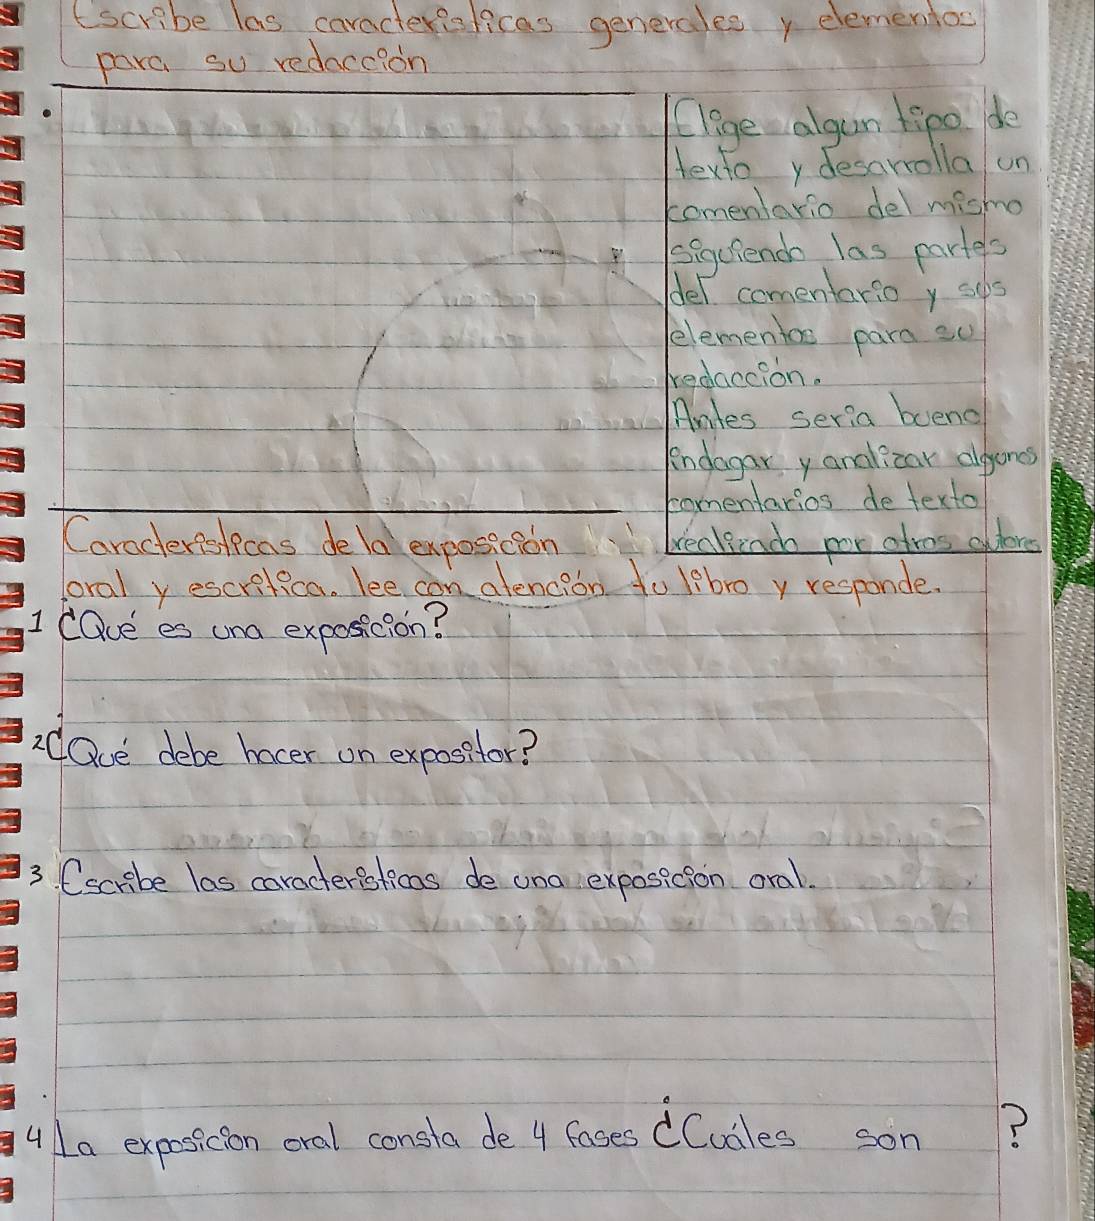 Escribe las caracteristicas generales y elementos
para su redacción
Elige algun tipo de
texto y desarrolla un
comentario del mismo
siguiendo las partes
del comentario y sus
elementos para su
redacción.
Antes seria bueno
indagar y analizar algunos
comentarios de texto
realizado por otros autores
Caracteristicas de la exposición
oral y escritica. lee con atención tu libro y responde.
1 ¿Qué es una exposición?
2 ¿Qué debe hacer un expositor?
3 Escribe las caracteristicas de una exposición oral.
4 La exposicion oral consta de 4 fases ¿Cuáles son ?